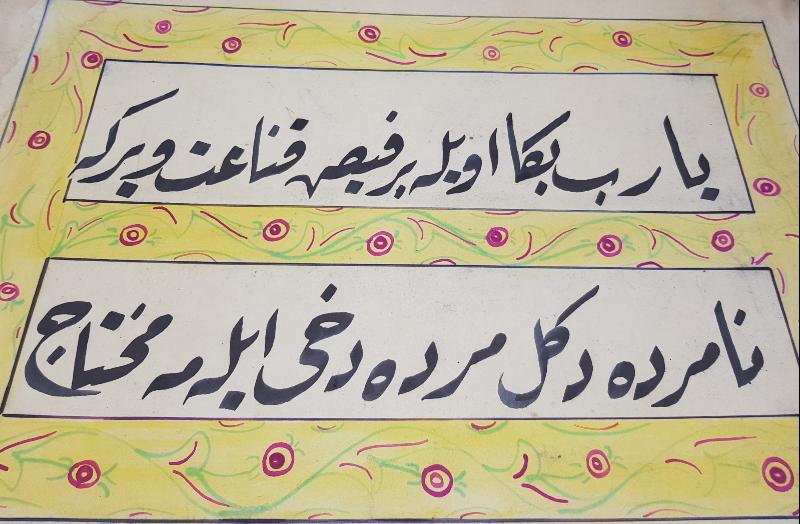 یا رب بکا اویله بر فیض قناعت ویر که
نامرده دکل مرده دخی ایله مه محتاج